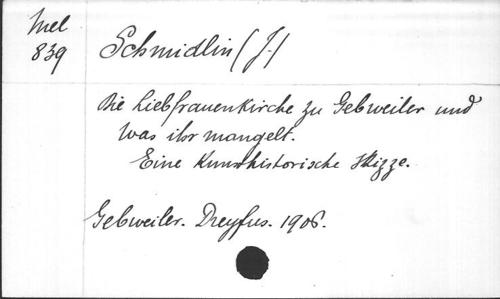 Mel
839
Schmidlin (J.)
Die Liebfrauenkirche zu Gebweiler und
was ihr mangelt.
Eine Kunsthistorische Skizze.
Gebweiler. Dreyfus. 1906.